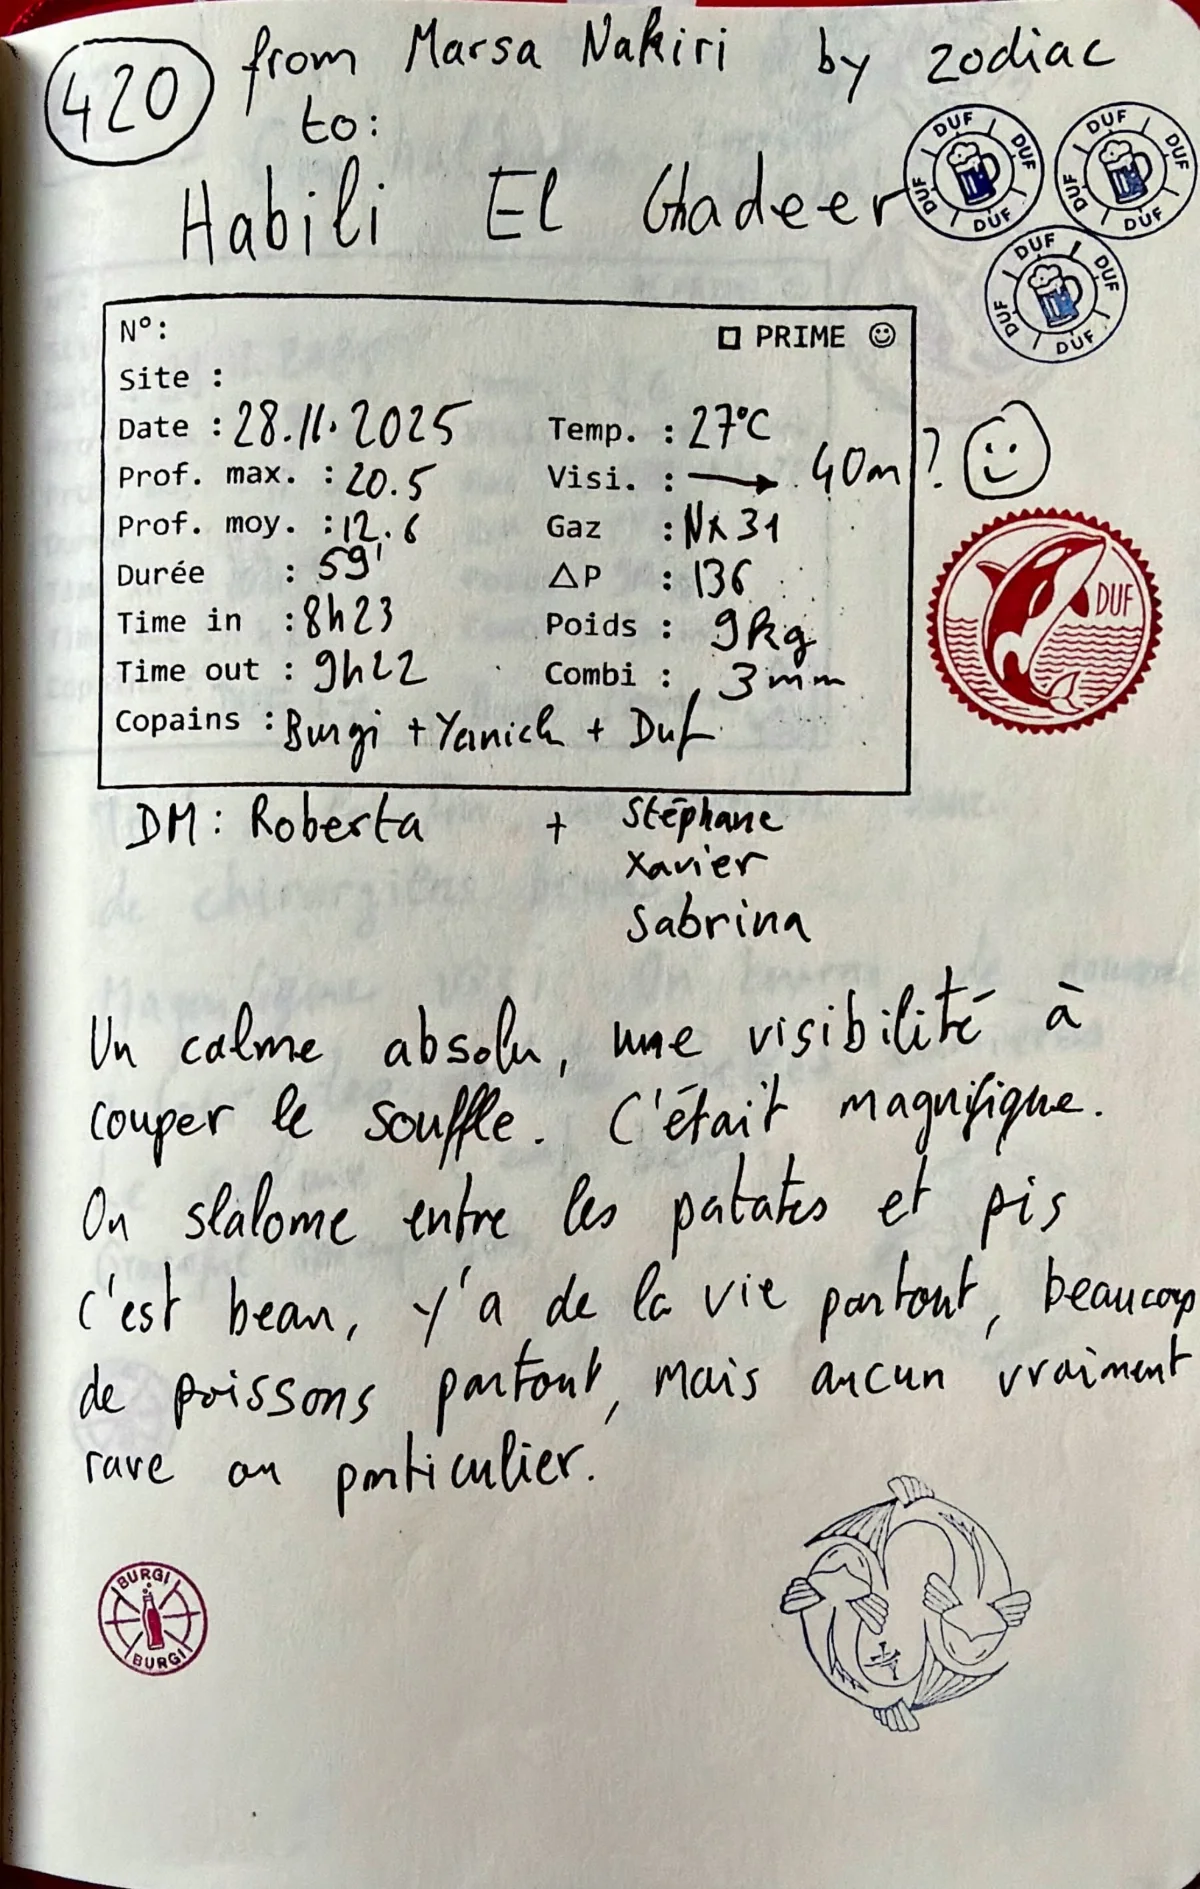 420 from Marsa Nakiri by zodiac
to:
Habili El Ghadeer
DUF DUF DUF DUF
DUF DUF DUF DUF
DUF DUF DUF DUF
N°: PRIME ☺
Site :
Date : 28.11.2025 Temp. : 27°C
Prof. max. : 20.5 Visi. : → 40m ? ☺
Prof. moy. : 12.6 Gaz : Nx 31
Durée : 59' ΔP : 136
DUF
Time in : 8h23 Poids : 9kg
Time out : 9h22 Combi : 3mm
Copains : Burgi + Yanick + Duf
DM: Roberta + Stéphane
Xavier
Sabrina
Un calme absolu, une visibilité à
couper le souffle. C'était magnifique.
On slalome entre les patates et pis
c'est beau, y'a de la vie partout, beaucoup
de poissons partout, mais aucun vraiment
rare ou particulier.
BURGI
BURGI